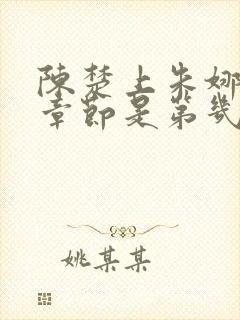 陳楚上朱娜
章節是第幾
姚某某